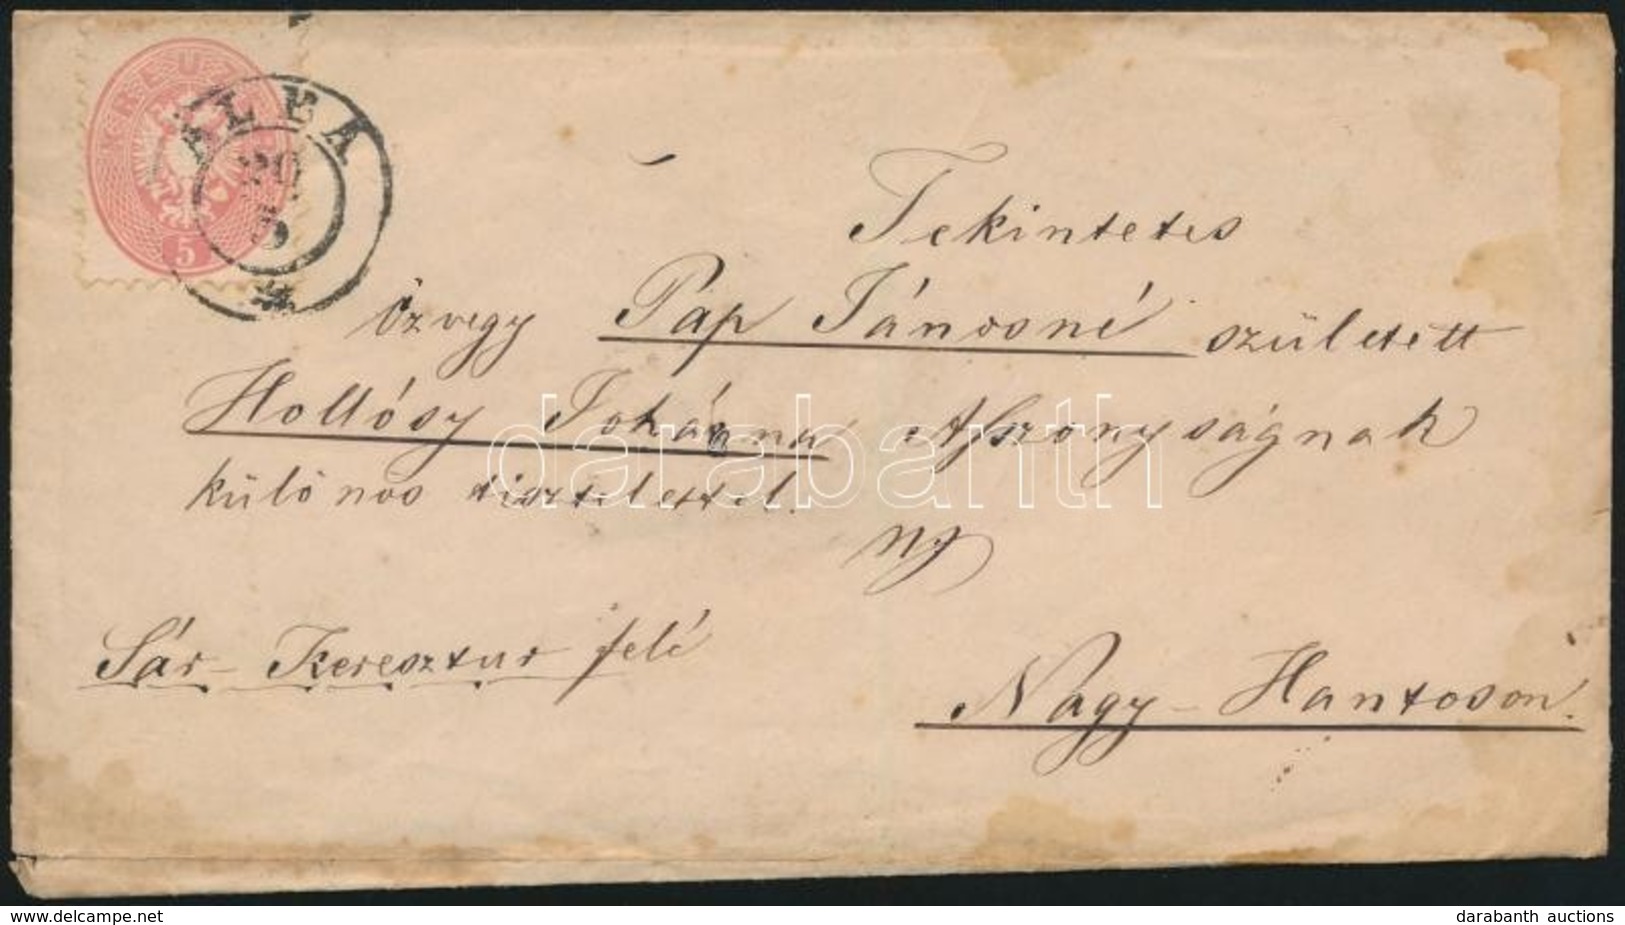 KREU
5
ALBA
20
5
Tekintetes
Özvegy Pap Jánosné született
Hollósy Johánna Aszonyságnak
különos tisztelettel.
Sár-Keresztur felé
Nagy-Hantoson.
darabanth
www.delcampe.net
darabanth auctions